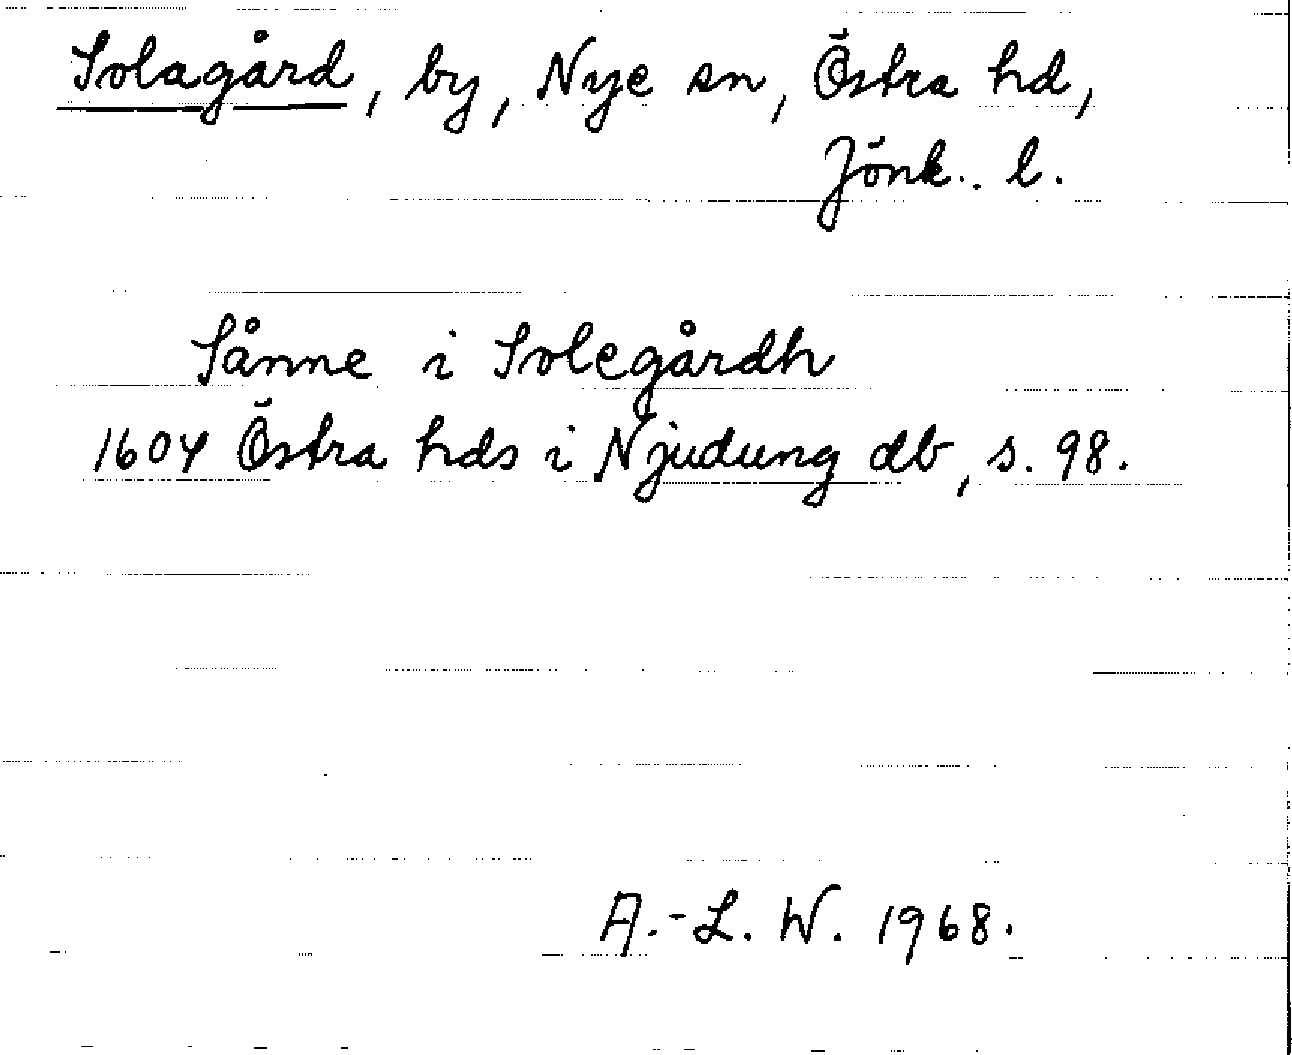 Solagård, by, Nye sn, Östra hd,
Jönk. l.
Sånne i Solegårdh
1604 Östra hds i Njudung db, s. 98.
A.-L. W. 1968.